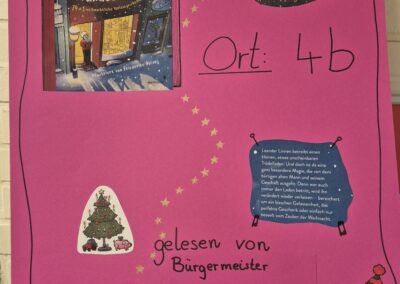 24 + 1
Ort: 4b
Leander Linnen betreibt einen
kleinen, etwas unscheinbaren
Trödelladen. Und doch ist da eine
ganz besondere Magie, die von dem
bärtigen alten Mann und seinem
Geschäft ausgeht. Denn wer auch
immer den Laden betritt, wird ihn
verändert wieder verlassen – bereichert
um ein bisschen Gelassenheit, das
perfekte Geschenk oder einfach nur
beseelt vom Zauber der Weihnacht.
gelesen von
Bürgermeister